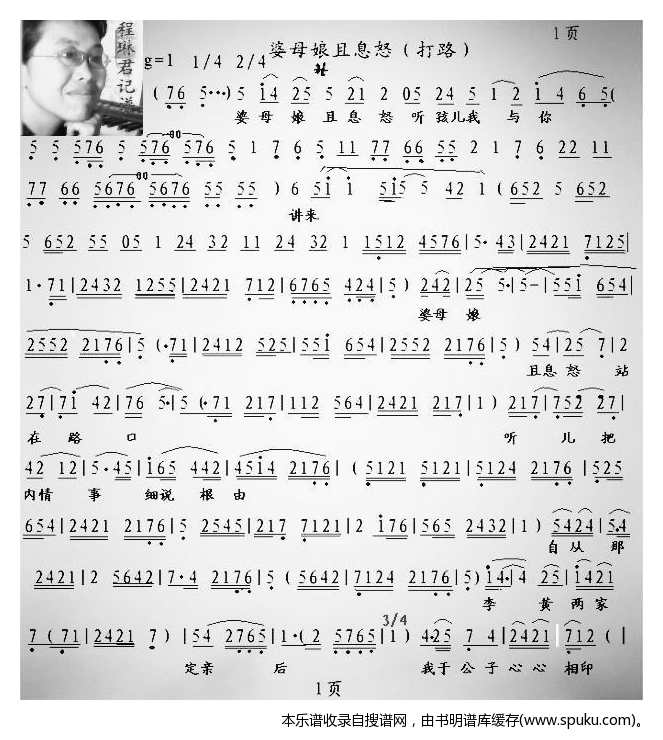 程琳君记谱
婆母娘且息怒（打路）
1页
g=1 1/4 2/4
(76 5···)5 i4 25 5 21 2 05 24 5 1 2 i 4 6 5(
婆母娘 且息怒听孩儿我 与你
5 5 576 5 576 576 5 1 7 6 5 11 77 66 55 2 1 7 6 22 11
77 66 5676 5676 55 55 ) 6 5i i 5i5 5 42 1 (652 5 652
讲来
5 652 55 05 1 24 32 11 24 32 1 1512 4576|5·43|2421 7125|
1·71|2432 1255|2421 712|6765 424|5) 242|25 5·|5-|55i 654|
婆母 娘
2552 2176|5 (·71|2412 525|55i 654|2552 2176|5) 54|25 7|2
且息怒 站
27|7i 42|76 5·|5 (·71 217|112 564|2421 217|1) 217|752 27|
在 路 口 听 儿 把
42 12|5·45|i65 442|45i4 2176|(5121 5121|5124 2176|525
内情 事 细说 根由
654|2421 2176|5 2545|217 7121|2 i76|565 2432|1) 5424|5·4
自从 那
2421|2 5642|7·4 2176|5 (5642|7124 2176|5) i4·|4 25|i421
李 黄 两家
7 (71|2421 7)|54 2765|1·(2 5765|1) 3/4 4·25 7 4|2421|712 (|
定亲 后 我于公子心心 相印
1页
本乐谱收录自搜谱网，由书明谱库缓存(www.spuku.com)。